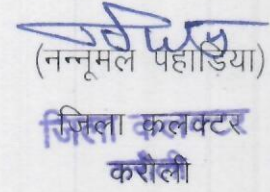 (नन्नूमल पहाडिया)
जिला कलक्टर
करौली